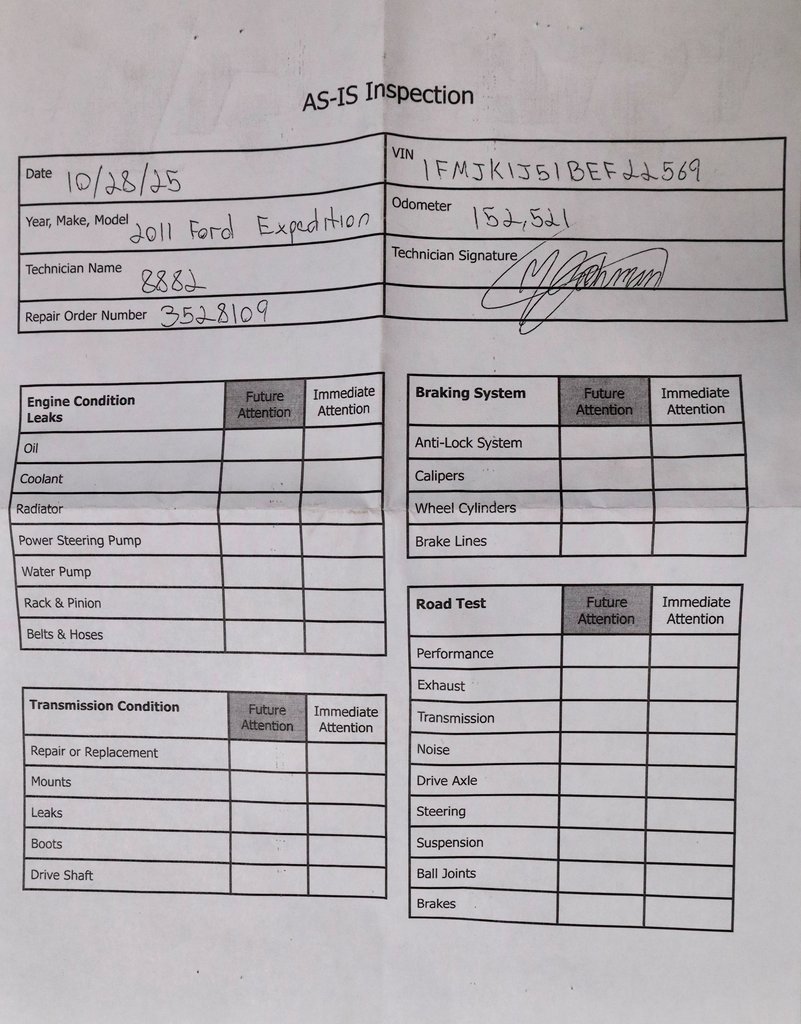 AS-IS Inspection
Date 10/28/25
VIN 1FMJK1J51BEF22569
Year, Make, Model 2011 Ford Expedition
Odometer 152,521
Technician Name 8882
Technician Signature
Repair Order Number 3528109
Engine Condition Leaks Future Attention Immediate Attention
Oil
Coolant
Radiator
Power Steering Pump
Water Pump
Rack & Pinion
Belts & Hoses
Transmission Condition Future Attention Immediate Attention
Repair or Replacement
Mounts
Leaks
Boots
Drive Shaft
Braking System Future Attention Immediate Attention
Anti-Lock System
Calipers
Wheel Cylinders
Brake Lines
Road Test Future Attention Immediate Attention
Performance
Exhaust
Transmission
Noise
Drive Axle
Steering
Suspension
Ball Joints
Brakes